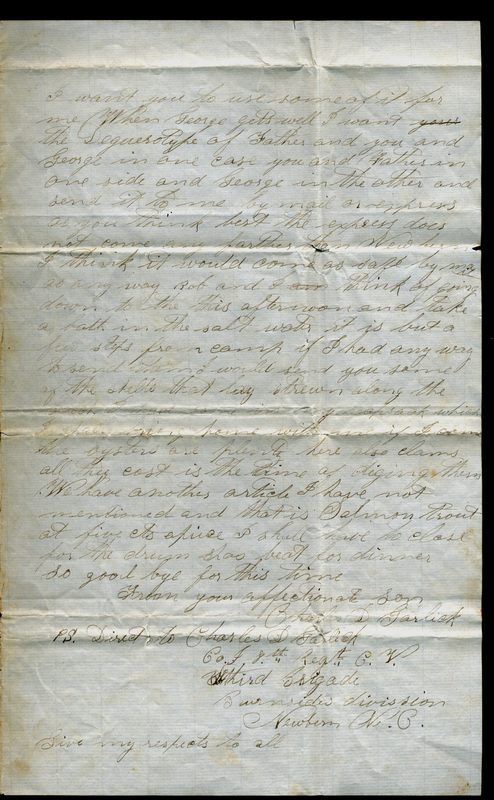 I want you to use some of it for
me When George gits well I want your
the Deguerotype of Father and you and
George in one case you and Father in
one side and George in the other and
send it to me by mail or express
as you think best the express does
not come any farther
I think it would come as safe by
as any way Rob and I am think of going
down to the this afternoon and take
a bath in the salt watr it is but a
few steps from camp if I had any way
to send them I would send you some
of the shells that lay strewn along the
home with
the oysters are plenty here also clams
all they cost is the time of diging them
We have another article I have not
mentioned and that is Salmon trout
at five cts apice I shall have to close
for the drum has beat for dinner
so good bye for this time
From your affectionat son
Charles D
PS. Direct to Charles D
Co J 8th Regt C. V.
third Brigade
Burnsides division
Newbern No C.
Give my respects to all